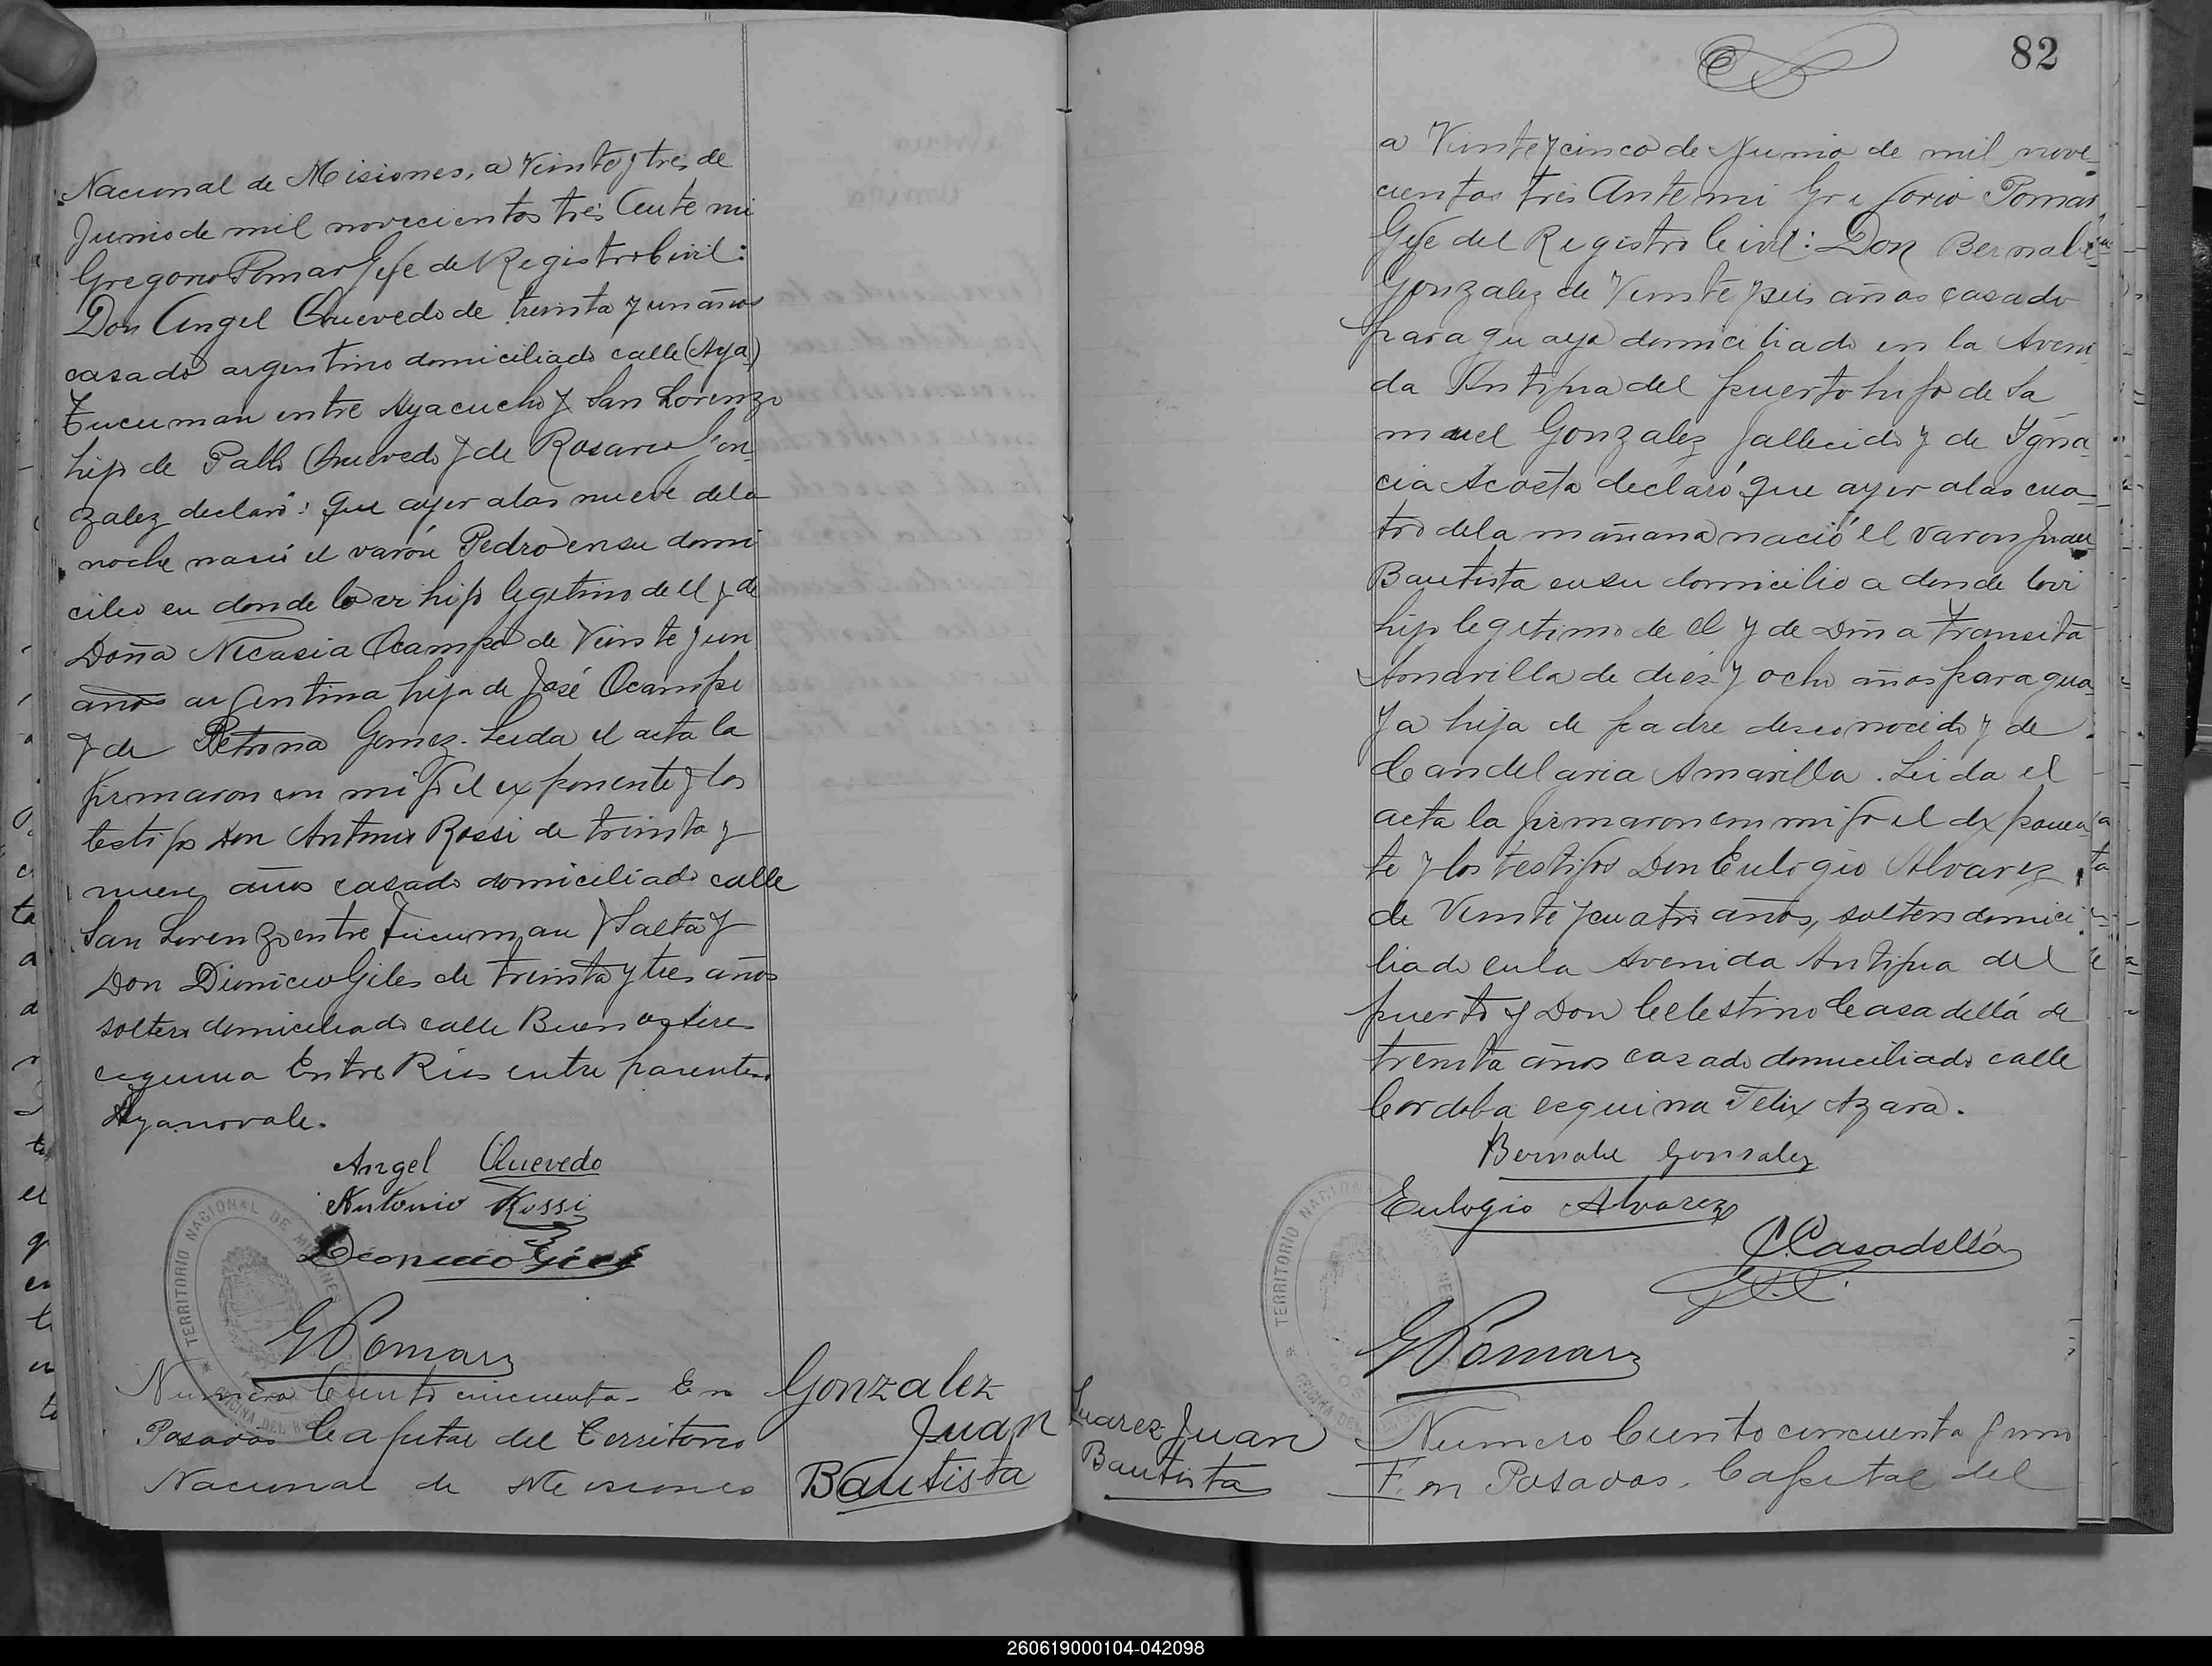 Nacional de Misiones, a Veinte y tres de
Junio de mil novecientos tres Ante mi
Gregorio Pomar Gefe del Registro Civil:
Don Angel Quevedo de treinta y un años
casado argentino domiciliado calle (Aya)
Tucuman entre Ayacucho y San Lorenzo
hijo de Pablo Quevedo y de Rosario Gon-
zalez declaró: Que ayer a las nueve de la
noche nació el varón Pedro en su domi
cilio en donde lo vi hijo legitimo de el y de
Doña Nicasia Ocampo de Veinte y un
años argentina hija de José Ocampo
y de Petrona Gomez. Leida el acta la
firmaron con migo el exponente y los
testigos Don Antonio Rossi de treinta y
nueve años casado domiciliado calle
San Lorenzo entre Tucuman y Salta y
Don Dionicio Giles de treinta y tres años
soltero domiciliado calle Buenos Aires
esquina Entre Rios entre parentesis
Aya no vale.
Angel Quevedo
Antonio Rossi
Dionicio Giles
G Pomar
TERRITORIO NACIONAL DE MISIONES
Numero Ciento cincuenta - En
Posadas Capital del Territorio
Nacional de Misiones
Gonzalez
Juan
Bautista
82
a Veinte y cinco de Junio de mil nove-
cientos tres Ante mi Gregorio Pomar
Gefe del Registro Civil: Don Bernabé
Gonzalez de Veinte y seis años casado
paraguayo domiciliado en la Aveni
da Antigua del puerto hijo de Sa
muel Gonzalez fallecido y de Ygna-
cia Acosta declaró Que ayer a las cua-
tro de la mañana nació el varon Juan
Bautista en su domicilio a donde lo vi
hijo legitimo de el y de Dña Transita
Amarilla de diez y ocho años paragua
ya hija de padre desconocido y de
Candelaria Amarilla. Leida el
acta la firmaron con migo el exponen
te y los testigos Don Eulogio Alvarez
de Veinte y cuatro años, soltero domici
liado en la Avenida Antigua del
puerto y Don Celestino Casadellá de
treinta años casado domiciliado calle
Cordoba esquina Felix Azara.
Bernabe Gonzalez
Eulogio Alvarez
C. Casadellá
G Pomar
TERRITORIO NACIONAL
Suarez Juan
Bautista
Numero Ciento cincuenta y uno
En Posadas, Capital del
260619000104-042098